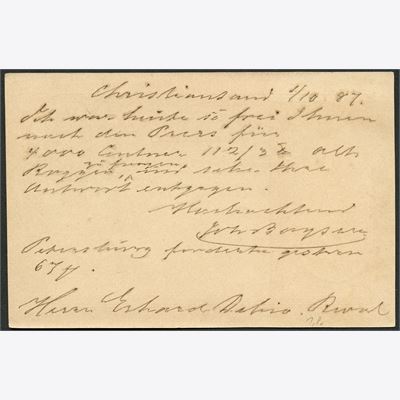 Christiansand 1/10 87.
Ich war heute so frei Ihnen
nach den Preis für
4000 Centner 112/3 ℔ alt
zu fragen,
Roggen und sehe Ihre
Antwort entgegen.
Hochachtend
Petersburg forderte gestern
67
Herrn Erhard Dehio. Reval